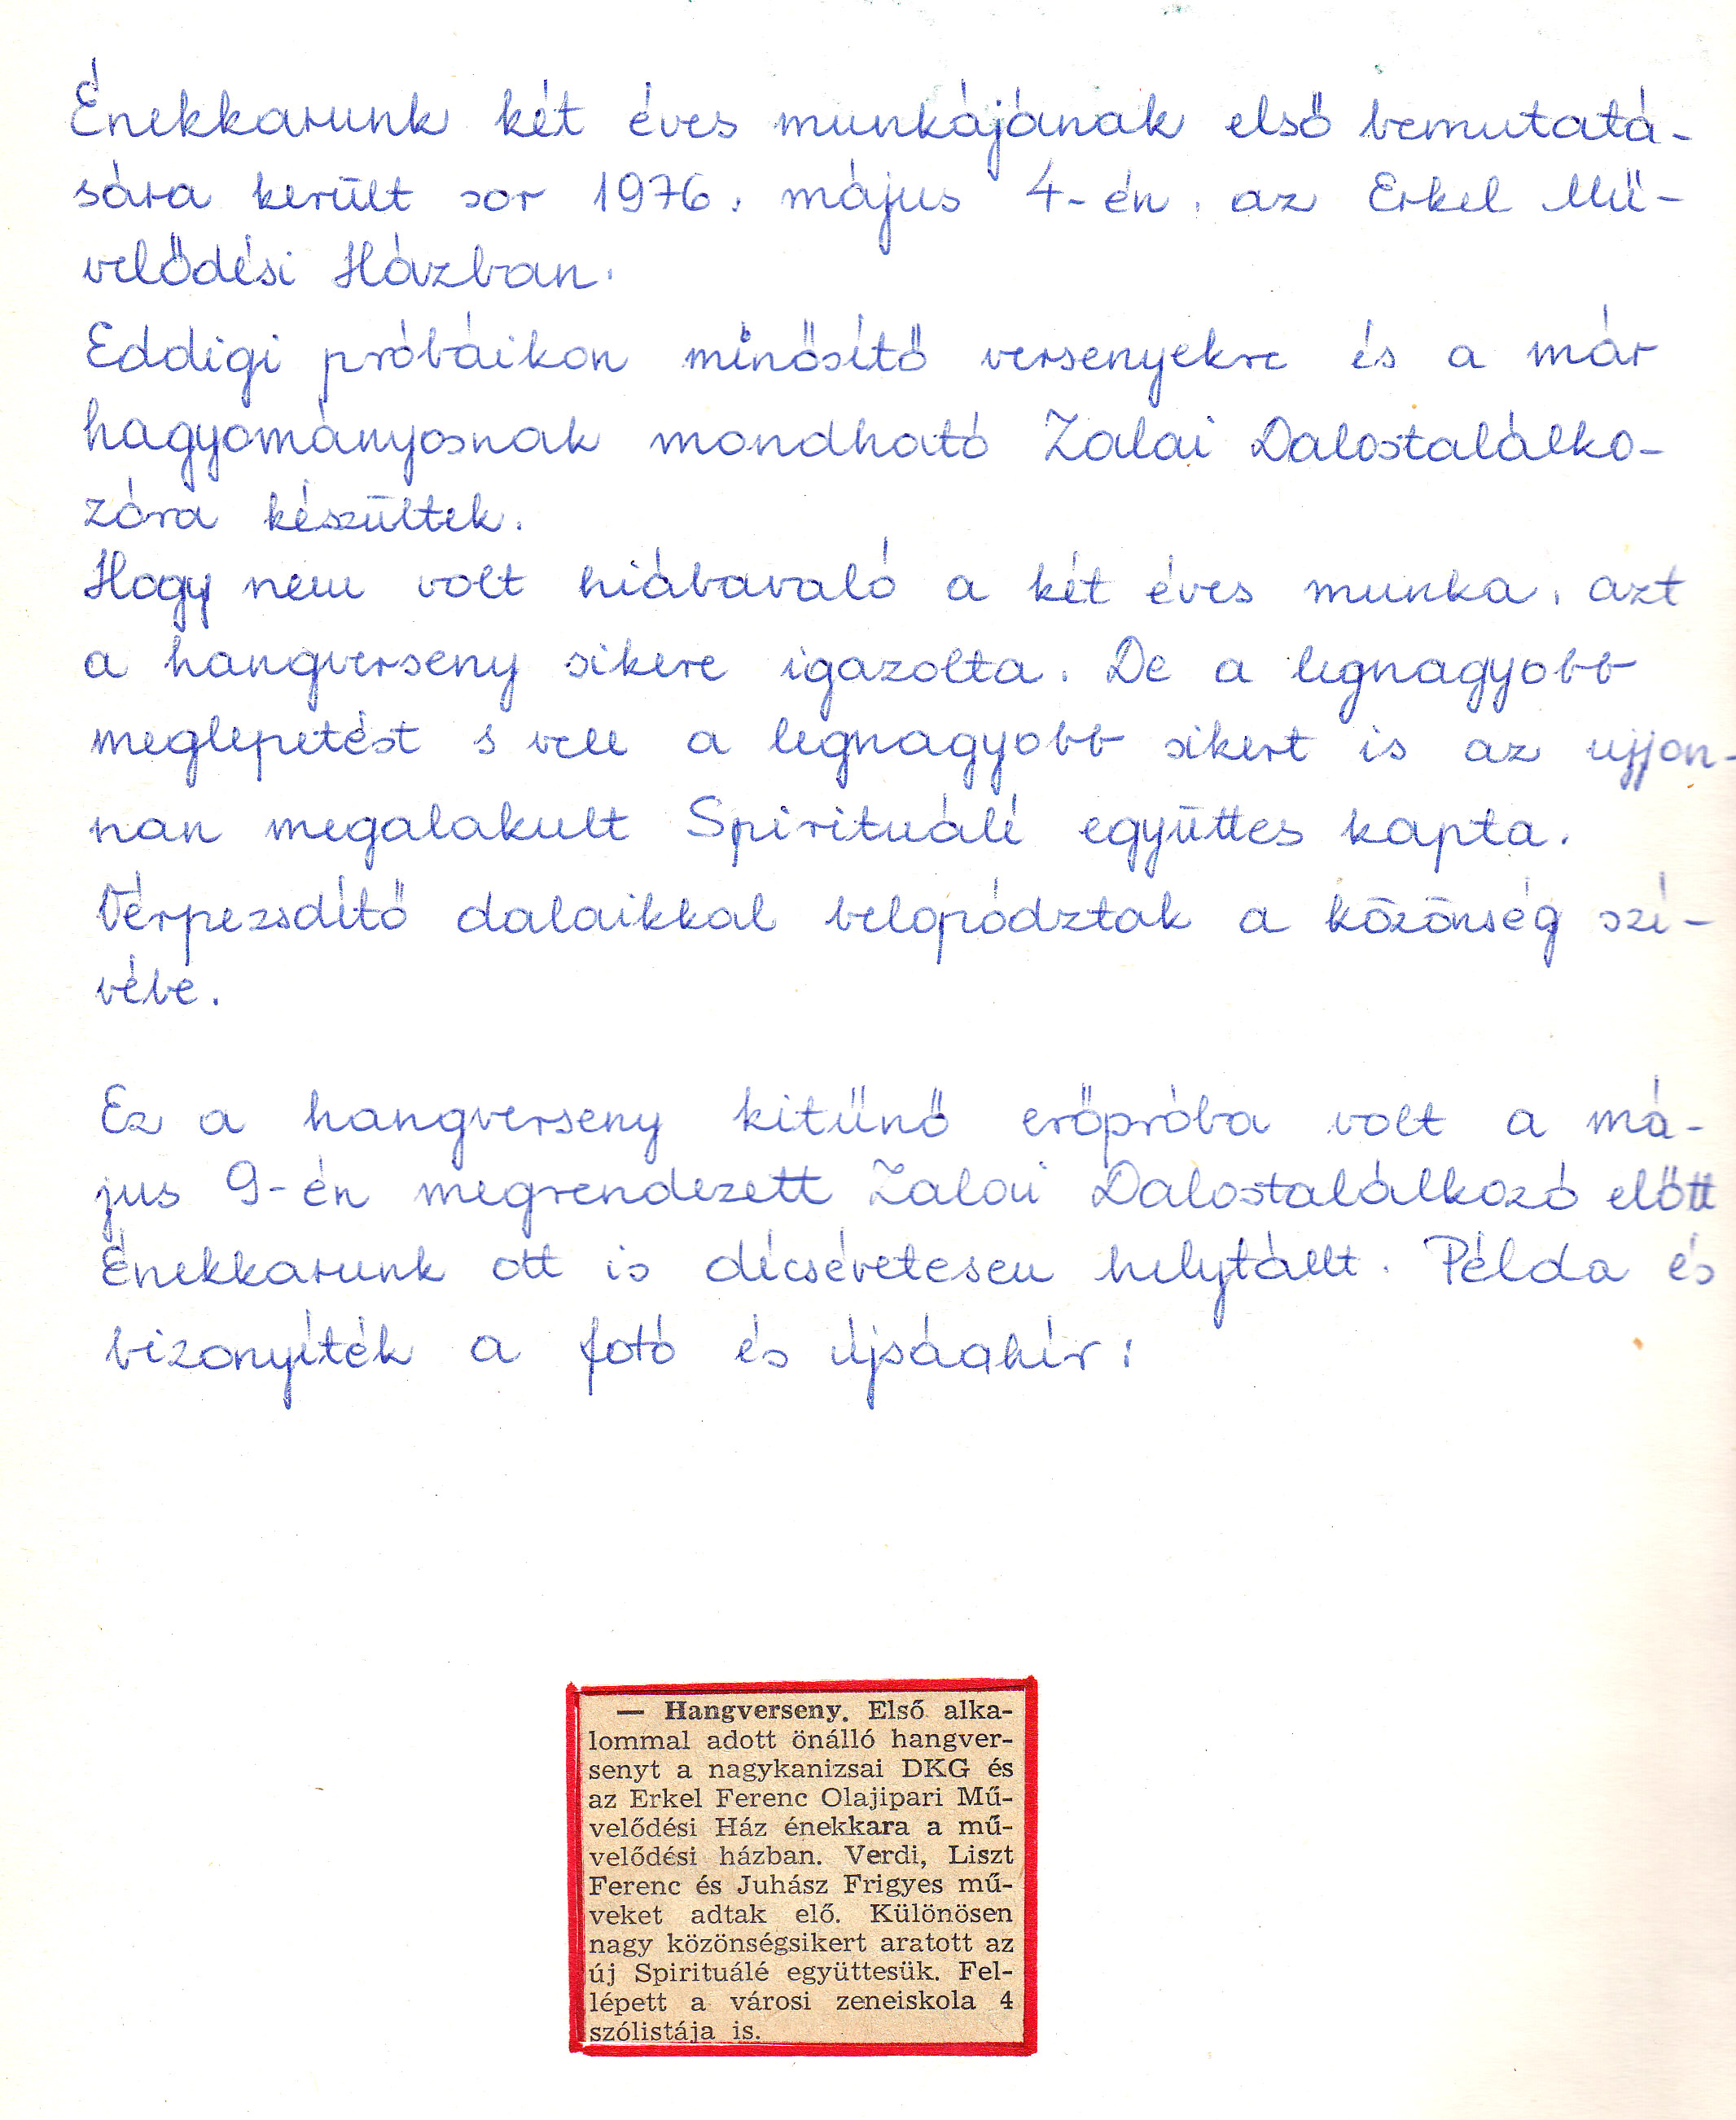 Énekkarunk két éves munkájának első bemutatá-
sára került sor 1976. május 4-én, az Erkel Mű-
velődési Házban.
Eddigi próbáikon minősítő versenyekre és a már
hagyományosnak mondható Zalai Dalostalálko-
zóra készültek.
Hogy nem volt hiábavaló a két éves munka, azt
a hangverseny sikere igazolta. De a legnagyobb
meglepetést s vele a legnagyobb sikert is az ujjon-
nan megalakult Spirituálé együttes kapta.
Vérpezsdítő dalaikkal belopództak a közönség szí-
vébe.
Ez a hangverseny kitűnő erőpróba volt a má-
jus 9-én megrendezett Zalai Dalostalálkozó előtt
Énekkarunk ott is dícséretesen helytállt. Példa és
bizonyíték a fotó és újsághír:
— Hangverseny. Első alka-
lommal adott önálló hangver-
senyt a nagykanizsai DKG és
az Erkel Ferenc Olajipari Mű-
velődési Ház énekkara a mű-
velődési házban. Verdi, Liszt
Ferenc és Juhász Frigyes mű-
veket adtak elő. Különösen
nagy közönségsikert aratott az
új Spirituálé együttesük. Fel-
lépett a városi zeneiskola 4
szólistája is.